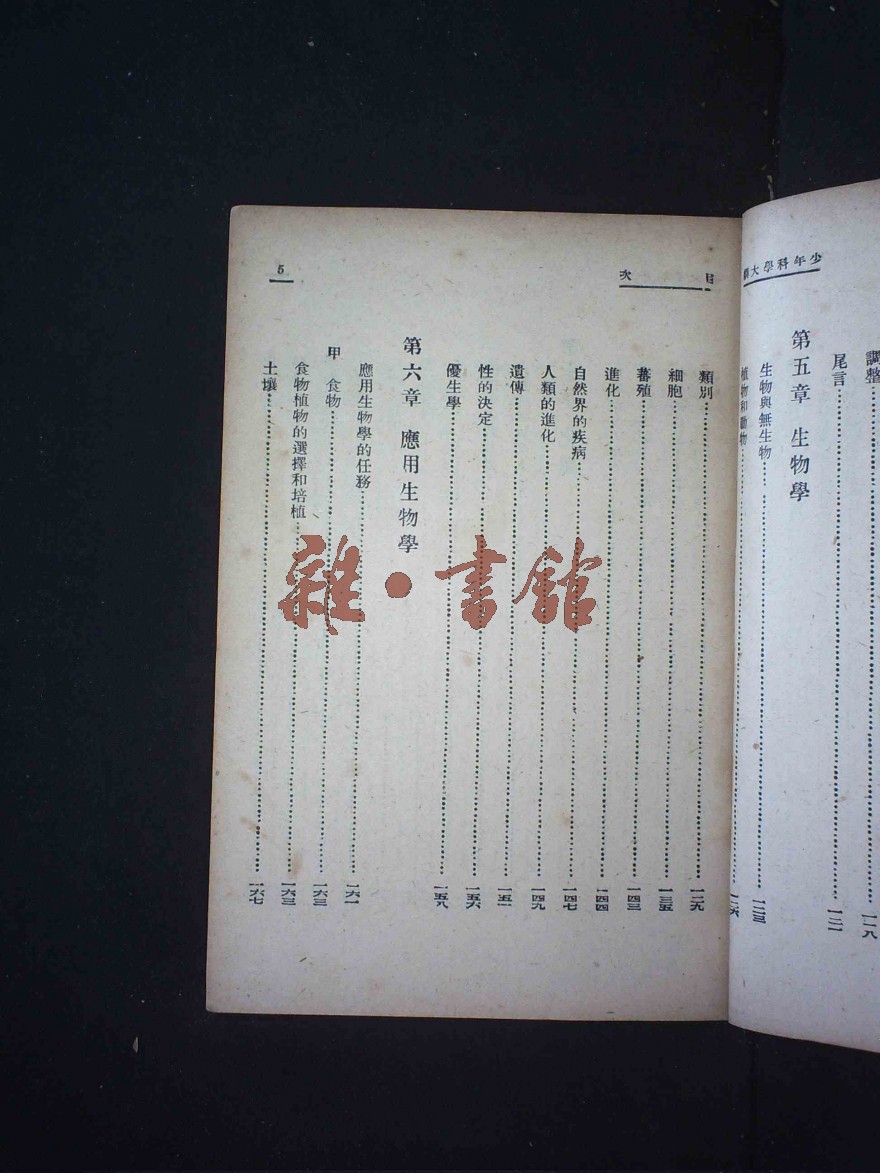 少年科學大
調整……一一八
尾言……一二一
第五章 生物學
生物與無生物……一二三
植物和動物……一二六
次
5
類別……一二九
細胞……一三五
蕃殖……一四三
進化……一四四
自然界的疾病……一四七
人類的進化……一四九
遺傳……一五一
性的決定……一五六
優生學……一五八
第六章 應用生物學
應用生物學的任務……一六一
甲 食物……一六三
食物植物的選擇和培植……一六三
土壤……一六七
雜·書館